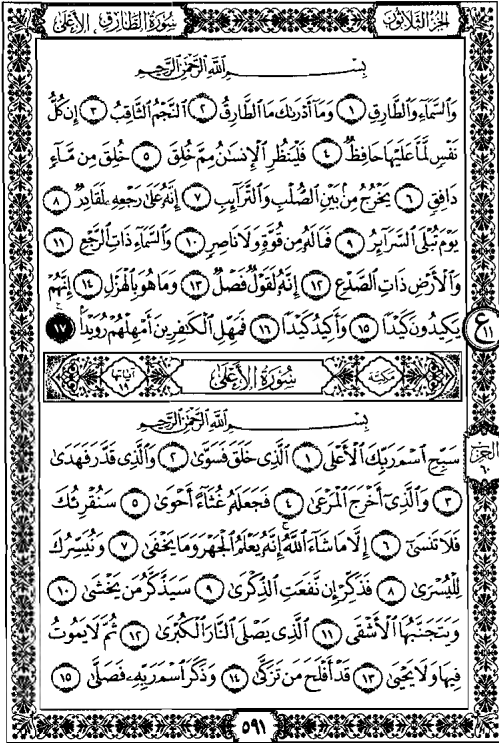 سُورَةُ الطَّارِقِ الأَعْلَى الجُزْءُ الثَّلَاثُونَ
بِسْمِ اللَّهِ الرَّحْمَٰنِ الرَّحِيمِ
وَالسَّمَاءِ وَالطَّارِقِ ١ وَمَا أَدْرَىٰكَ مَا الطَّارِقُ ٢ النَّجْمُ الثَّاقِبُ ٣ إِن كُلُّ
نَفْسٍ لَّمَّا عَلَيْهَا حَافِظٌ ٤ فَلْيَنظُرِ الْإِنسَٰنُ مِمَّ خُلِقَ ٥ خُلِقَ مِن مَّاءٍ
دَافِقٍ ٦ يَخْرُجُ مِن بَيْنِ الصُّلْبِ وَالتَّرَائِبِ ٧ إِنَّهُ عَلَىٰ رَجْعِهِ لَقَادِرٌ ٨
يَوْمَ تُبْلَى السَّرَائِرُ ٩ فَمَا لَهُ مِن قُوَّةٍ وَلَا نَاصِرٍ ١٠ وَالسَّمَاءِ ذَاتِ الرَّجْعِ ١١
وَالْأَرْضِ ذَاتِ الصَّدْعِ ١٢ إِنَّهُ لَقَوْلٌ فَصْلٌ ١٣ وَمَا هُوَ بِالْهَزْلِ ١٤ إِنَّهُمْ
يَكِيدُونَ كَيْدًا ١٥ وَأَكِيدُ كَيْدًا ١٦ فَمَهِّلِ الْكَٰفِرِينَ أَمْهِلْهُمْ رُوَيْدًا ١٧
ع ١١
مَكِّيَّة سُورَةُ الأَعْلَى آيَاتُهَا ١٩
بِسْمِ اللَّهِ الرَّحْمَٰنِ الرَّحِيمِ
سَبِّحِ اسْمَ رَبِّكَ الْأَعْلَى ١ الَّذِي خَلَقَ فَسَوَّىٰ ٢ وَالَّذِي قَدَّرَ فَهَدَىٰ
الحزب ٦٠
٣ وَالَّذِي أَخْرَجَ الْمَرْعَىٰ ٤ فَجَعَلَهُ غُثَاءً أَحْوَىٰ ٥ سَنُقْرِئُكَ
فَلَا تَنسَىٰ ٦ إِلَّا مَا شَاءَ اللَّهُ إِنَّهُ يَعْلَمُ الْجَهْرَ وَمَا يَخْفَىٰ ٧ وَنُيَسِّرُكَ
لِلْيُسْرَىٰ ٨ فَذَكِّرْ إِن نَّفَعَتِ الذِّكْرَىٰ ٩ سَيَذَّكَّرُ مَن يَخْشَىٰ ١٠
وَيَتَجَنَّبُهَا الْأَشْقَى ١١ الَّذِي يَصْلَى النَّارَ الْكُبْرَىٰ ١٢ ثُمَّ لَا يَمُوتُ
فِيهَا وَلَا يَحْيَىٰ ١٣ قَدْ أَفْلَحَ مَن تَزَكَّىٰ ١٤ وَذَكَرَ اسْمَ رَبِّهِ فَصَلَّىٰ ١٥
٥٩١